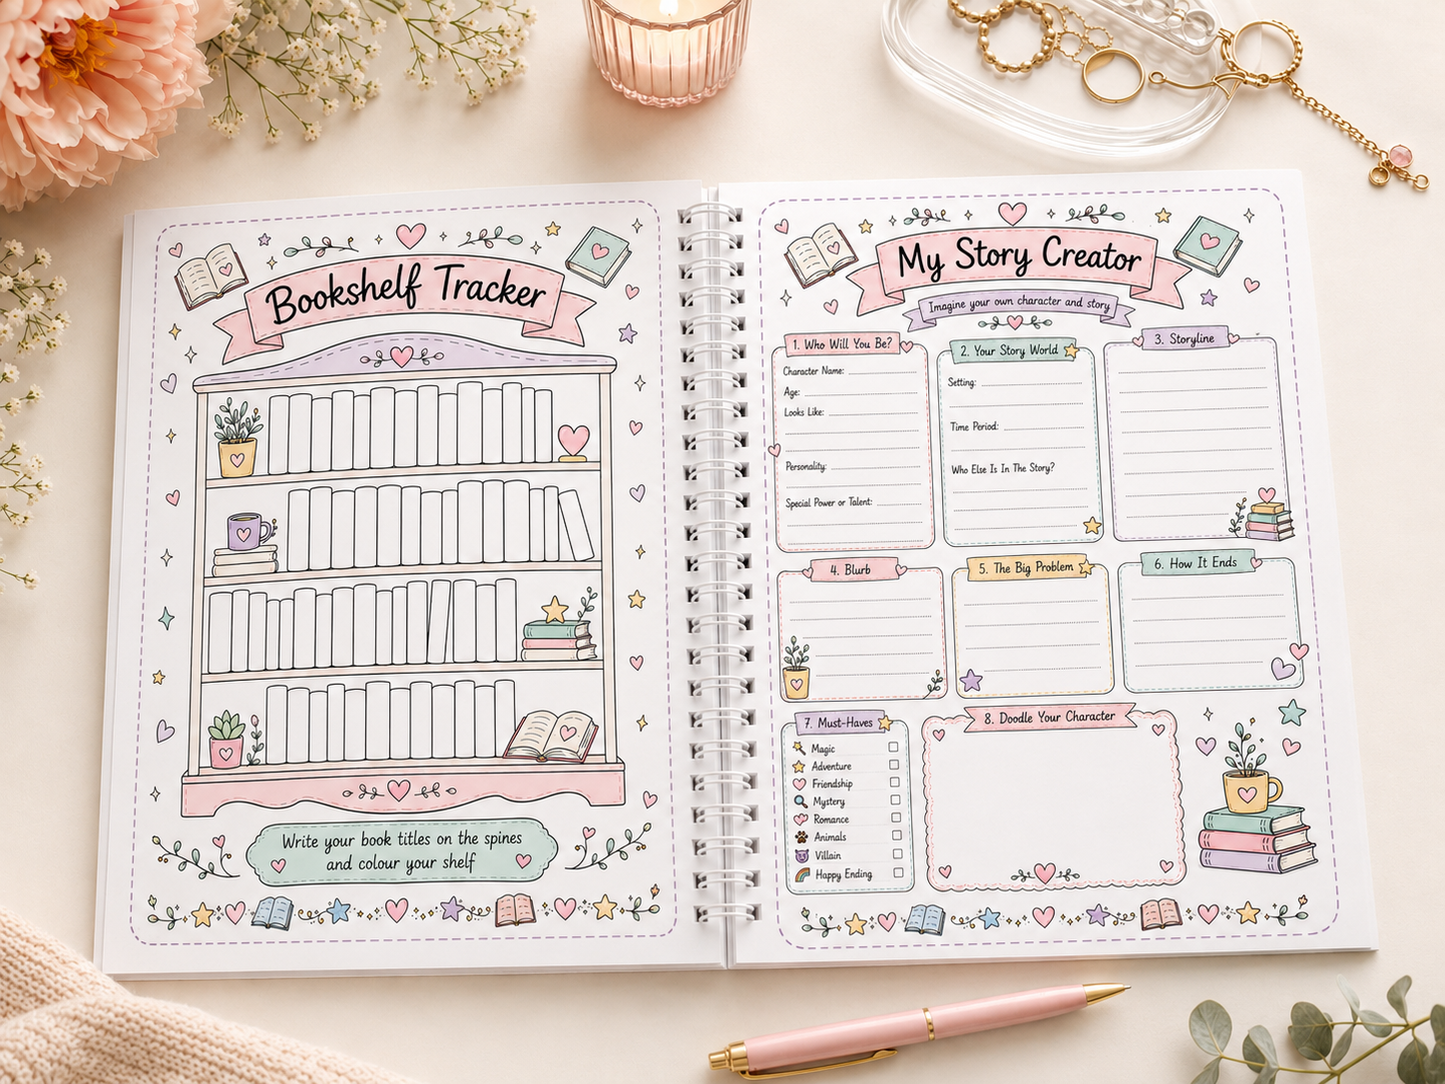 Bookshelf Tracker
Write your book titles on the spines
and colour your shelf
My Story Creator
Imagine your own character and story
1. Who Will You Be?
Character Name:
Age:
Looks Like:
Personality:
Special Power or Talent:
2. Your Story World
Setting:
Time Period:
Who Else Is In The Story?
3. Storyline
4. Blurb
5. The Big Problem
6. How It Ends
7. Must-Haves
Magic
Adventure
Friendship
Mystery
Romance
Animals
Villain
Happy Ending
8. Doodle Your Character